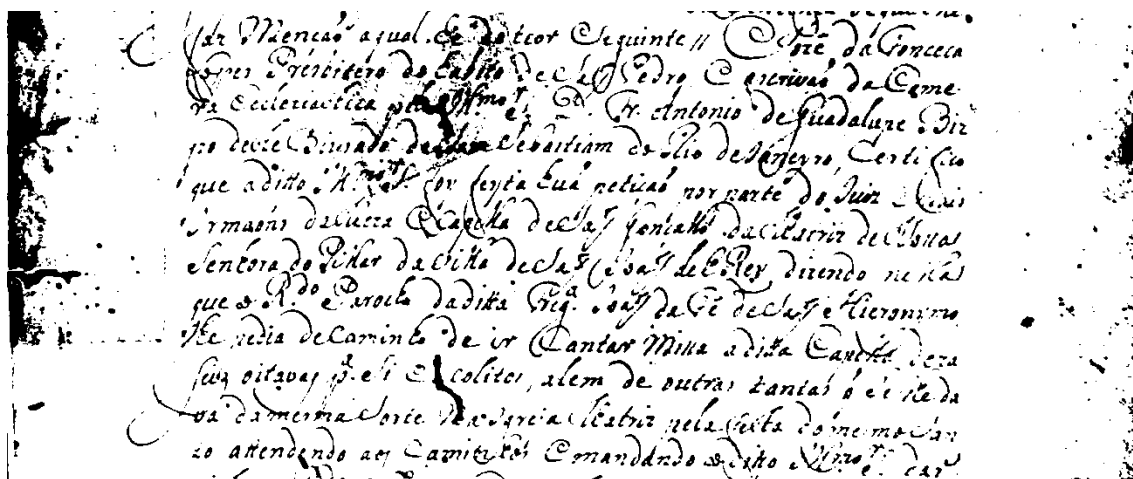 faz Mencaõ aqual hé do teor Seguinte // Jozé da Fonceca
Lopes Presbitero do habito de Saõ Pedro Escrivaõ da Came
ra Ecleciastica Antonio de Guadalupe Biz
po deste Bizpado Sebastiam do Rio de Janeyro, Certifico
que a ditto Ill.mo S. foy feyta huá petiçaõ por parte do Juiz e mais
Irmaons da Cappella de Saõ Gonçallo da Matriz de Nossa
Senhora do Pilhar da Villa de Saõ Joaõ del Rey dizendo nella
que o R.do Parocho da ditta Freg.ª Joaõ da Fé de Saõ Hieronymo
lhe pedia de Caminho de ir Cantar Missa a ditta Capella deza
seis oitavas p.ª si e Acolitos, alem de outras tantas q̃ se lhe da
va da mesma Sorte na Matriz pela festa do mesmo San
to attendendo aos Caminhos Emandando o ditto Ill.mo S. dar